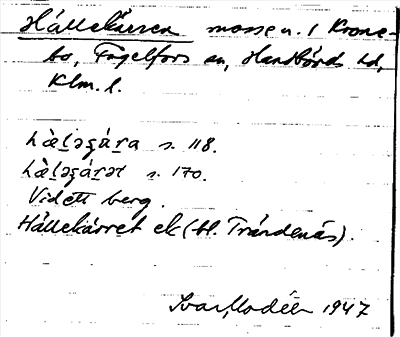 Hällekärren mosse u. 1 Krone-
bo, Fagelfors sn, Handbörds hd,
Klm. l.
hä̀ləʒára s. 118.
hä̀ləʒárət s. 170.
Vid ett berg.
Hällekärret ek (bl. Trändenäs).
Ivar Modéer 1947